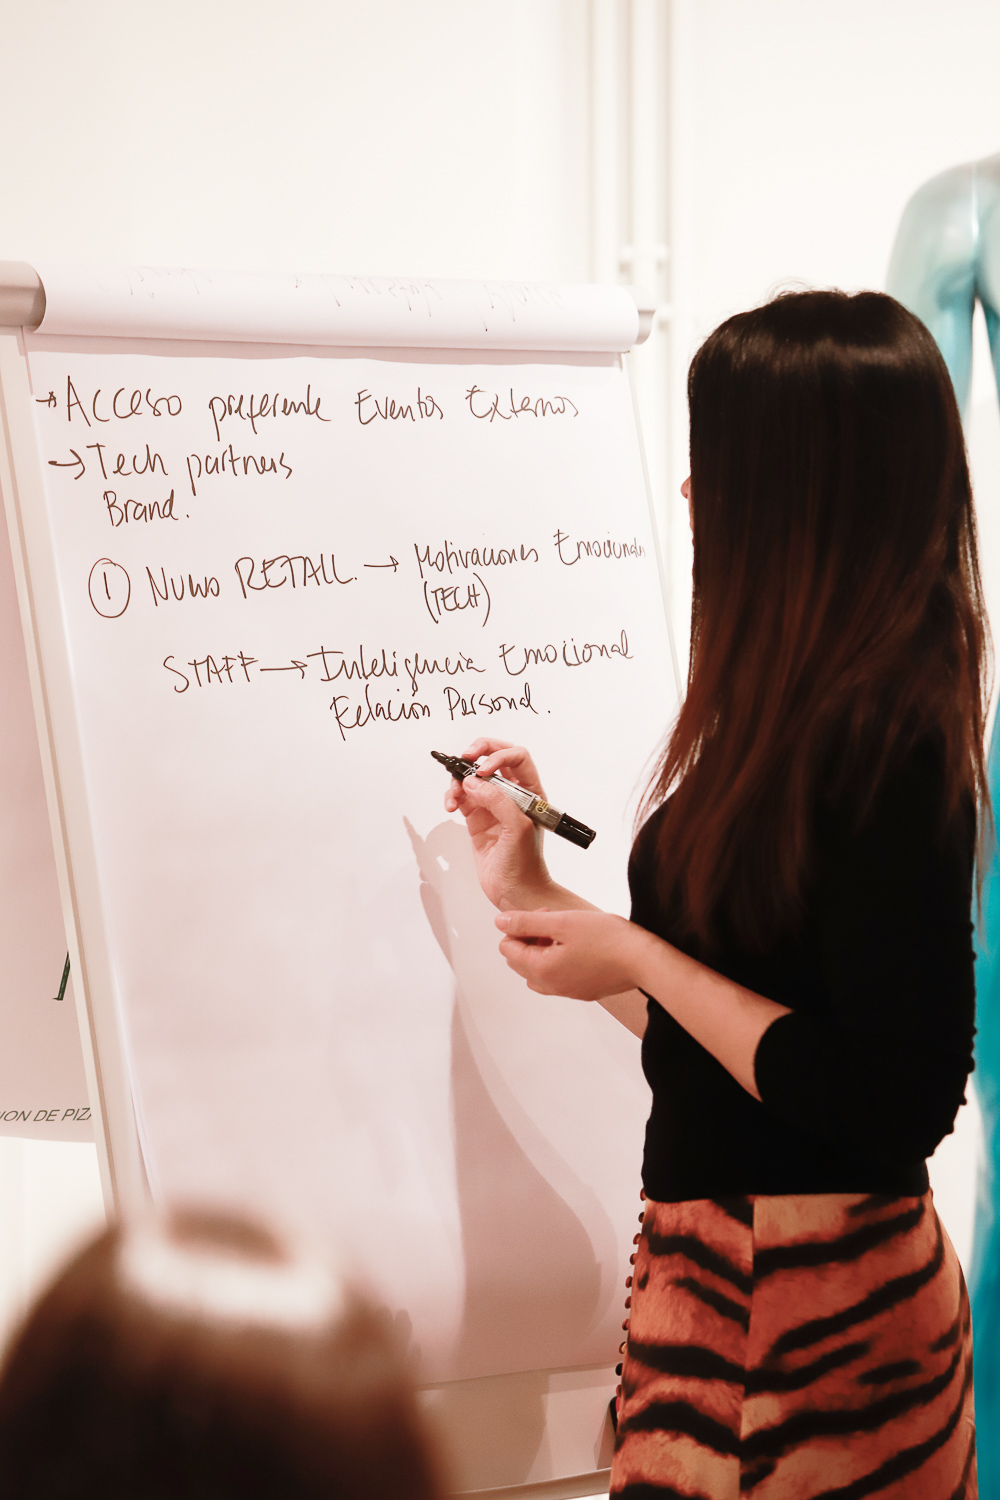 → Acceso preferente Eventos Externos
→ Tech partners
Brand.
① Nuevo RETAIL. → Motivaciones Emocionales
(TECH)
STAFF → Inteligencia Emocional
Relación Personal.
ION DE PIZA